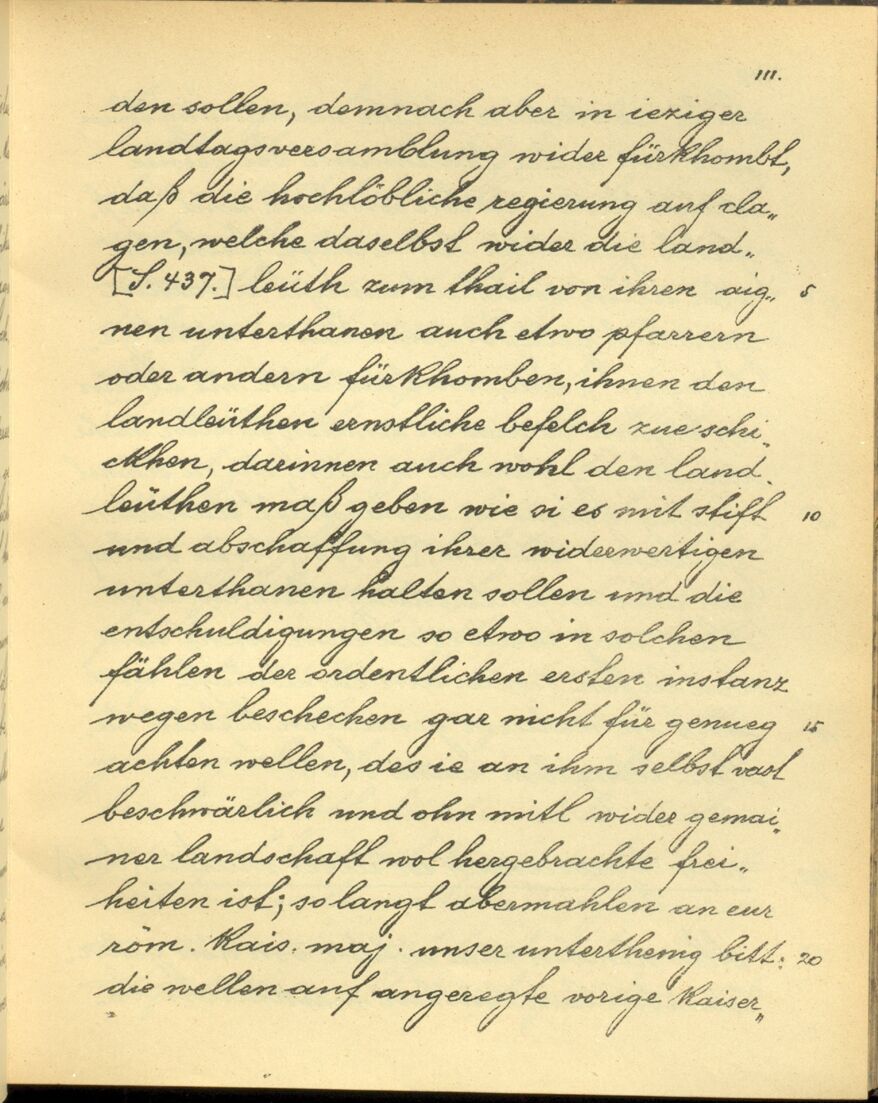 111.
den sollen, demnach aber in ieziger
landtagsversamblung wider fürkhombt,
daß die hochlöbliche regierung auf cla„
gen, welche daselbst wider die land„
[S. 437.] leüth zum thail von ihren aig„ 5
nen unterthanen auch etwo pfarrern
oder andern fürkhomben, ihnen den
landleüthen ernstliche befelch zue schi„
ckhen, darinnen auch wohl den land„
leüthen maß geben wie si es mit stift 10
und abschaffung ihrer widerwertigen
unterthanen halten sollen und die
entschuldigungen so etwo in solchen
fählen der ordentlichen ersten instanz
wegen beschechen gar nicht für genueg 15
achten wellen, des ie an ihm selbst vast
beschwärlich und ohn mitl wider gemai„
ner landschaft wol hergebrachte frei„
heiten ist; so langt abermahlen an eur
röm. kais. maj. unser unterthenig bitt: 20
die wellen auf angeregte vorige kaiser„